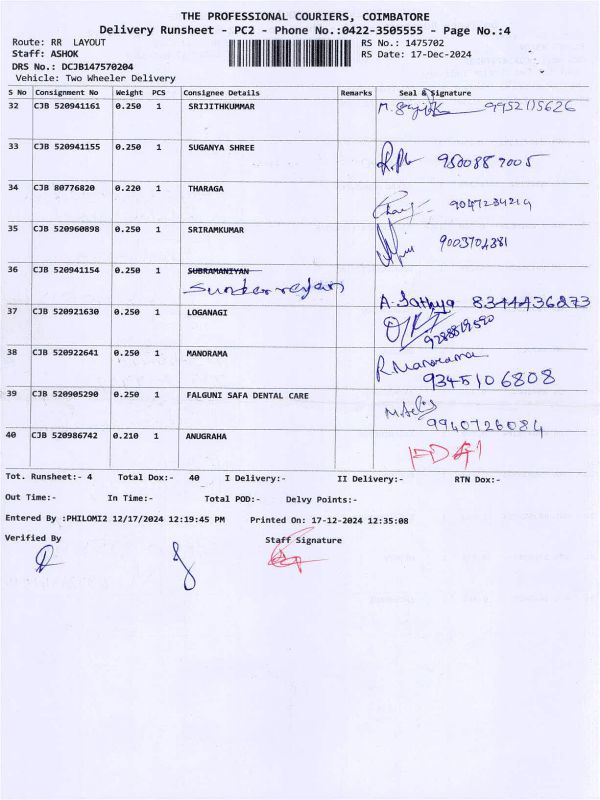 THE PROFESSIONAL COURIERS, COIMBATORE
Delivery Runsheet - PC2 - Phone No.:0422-3505555 - Page No.:4
Route: RR LAYOUT RS No.: 1475702
Staff: ASHOK RS Date: 17-Dec-2024
DRS No.: DCJB147570204
Vehicle: Two Wheeler Delivery
S No Consignment No Weight PCS Consignee Details Remarks Seal & Signature
32 CJB 520941161 0.250 1 SRIJITHKUMMAR 9952115626
33 CJB 520941155 0.250 1 SUGANYA SHREE 9500857005
34 CJB 80776820 0.220 1 THARAGA 9047234214
35 CJB 520960898 0.250 1 SRIRAMKUMAR 9003704381
36 CJB 520941154 0.250 1 SUBRAMANIYAN
A. Sathya 8344436273
37 CJB 520921630 0.250 1 LOGANAGI
38 CJB 520922641 0.250 1 MANORAMA R. Manorama
9345106808
39 CJB 520905290 0.250 1 FALGUNI SAFA DENTAL CARE
9940726084
40 CJB 520986742 0.210 1 ANUGRAHA
Tot. Runsheet:- 4 Total Dox:- 40 I Delivery:- II Delivery:- RTN Dox:-
Out Time:- In Time:- Total POD:- Delvy Points:-
Entered By :PHILOMI2 12/17/2024 12:19:45 PM Printed On: 17-12-2024 12:35:08
Verified By Staff Signature